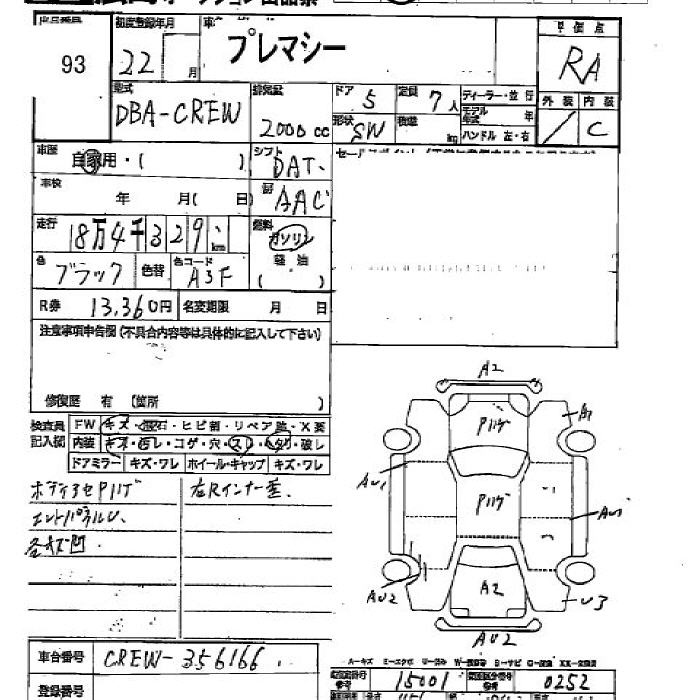 出品番号 初度登録年月 車 評価点
93 22 月 プレマシー RA
型式 排気量 ドア 5 定員 7人 ディーラー・並行 外装 内装
DBA-CREW 2000cc 形状 SW 積載 kg モデル年式 年 / C
ハンドル 左・右
車歴 自家用・( ) シフト DAT
車検 年 月( 日) AAC
走行 18万4千329 km 燃料 ガソリン
色 ブラック 色替 色コード A3F 軽油 ( )
R券 13,360円 名変期限 月 日
注意事項申告欄(不具合内容等は具体的に記入して下さい)
修復歴 有 〔箇所 〕
検査員 FW キズ・飛石・ヒビ割・リペア跡・X要
記入欄 内装 キズ・ヨゴレ・コゲ・穴・スレ・ヘタリ・破レ
ドアミラー キズ・ワレ ホイール・キャップ キズ・ワレ
ボディ
左Rインナー
A2
Pハゲ A1
AU1 Pハゲ
AU2 A2 U3
AU2
A-キズ
車台番号 CREW-356166
15001 0252
登録番号